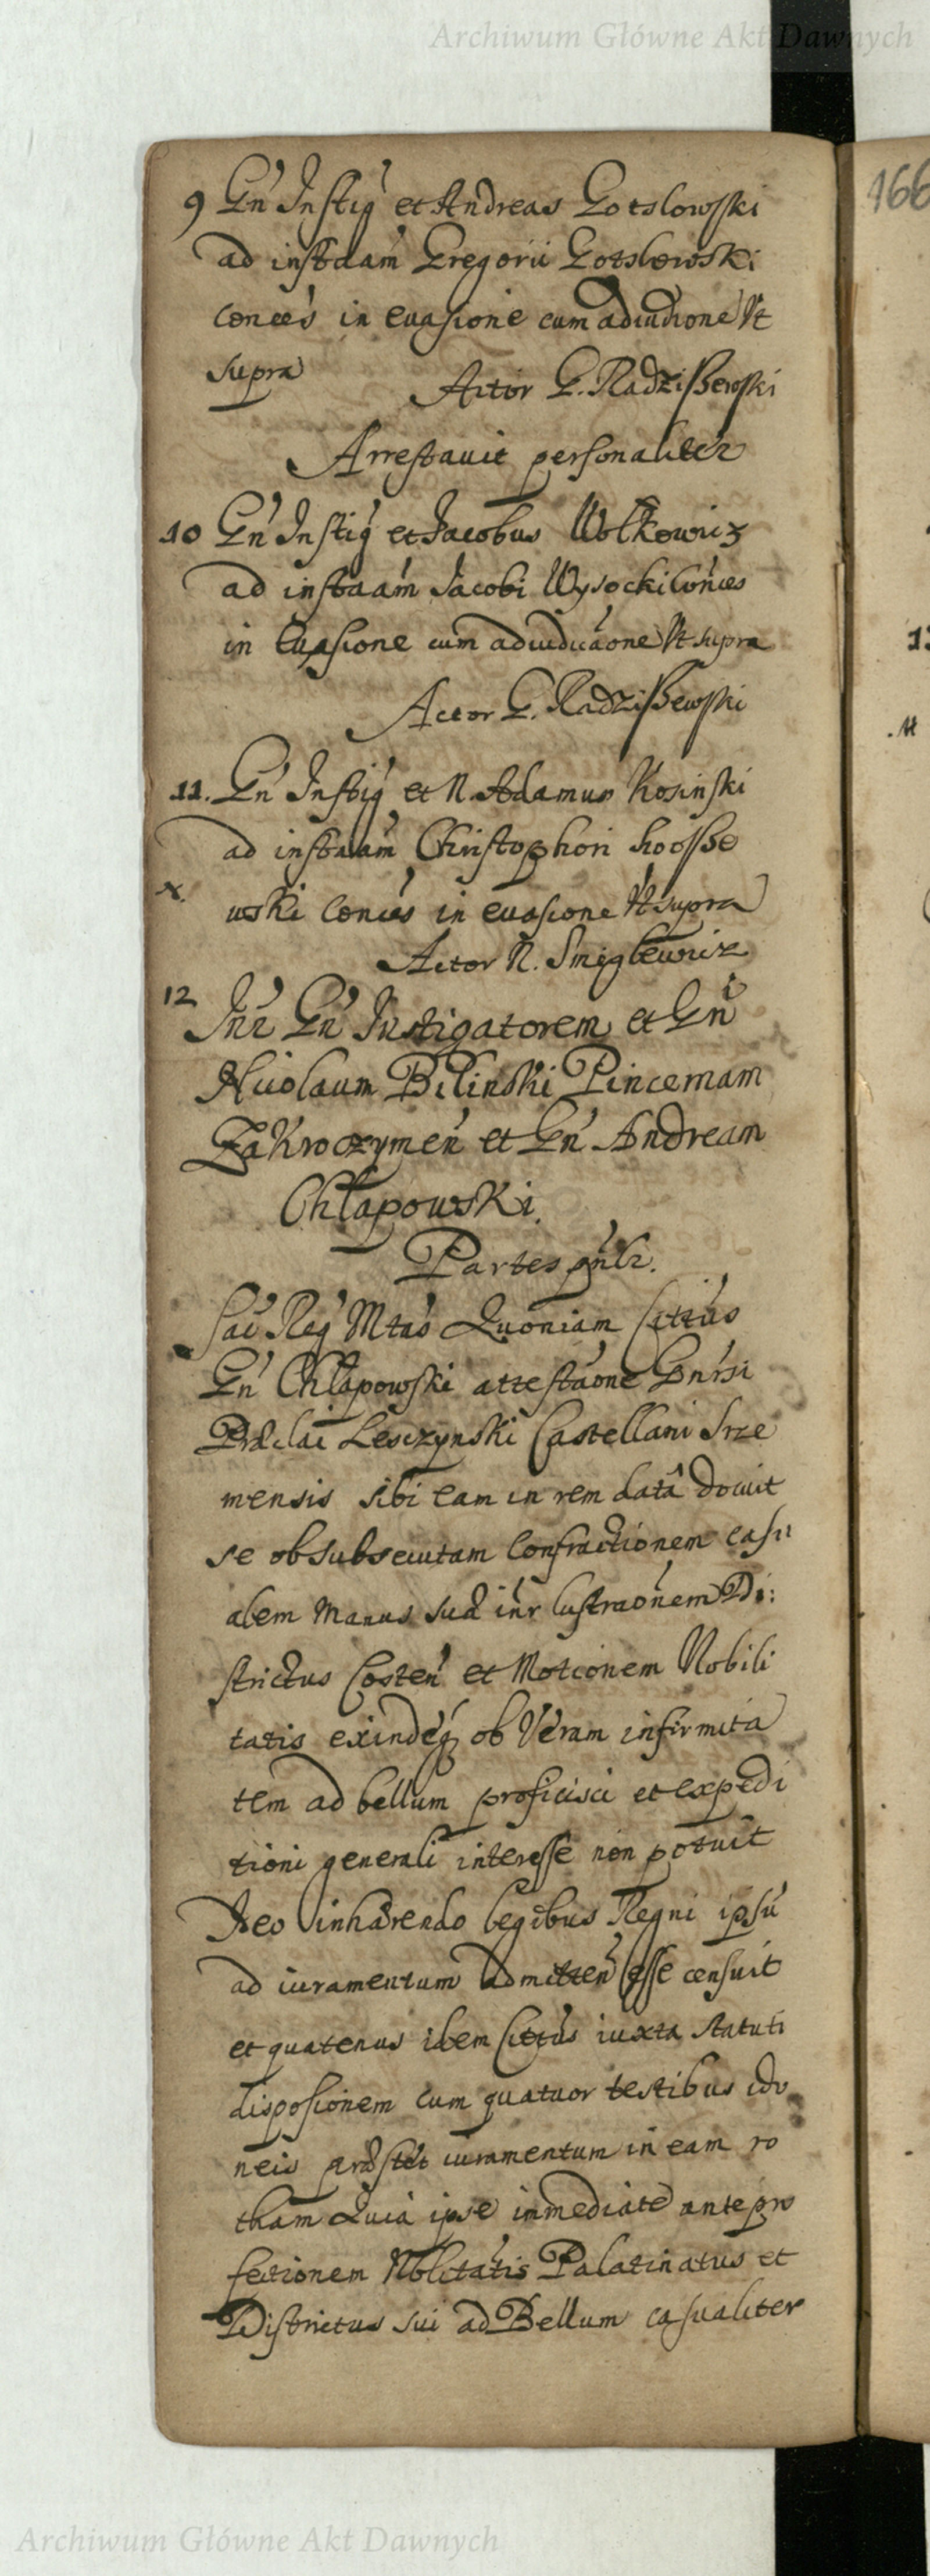 Archiwum Główne Akt Dawnych
166
9 Gn̄ Instig̃ et Andreas Gotslowski
ad instaām Gregorii Gotslowski
conces in euasione cum adiudione Vt
supra Actor G. Radziszewski
Arrestauit personaliter
10 Gn̄ Instig̃ et Jacobus Wołkowicz
ad instaām Jacobi Wysocki conces
in Euasione cum adiudicaone Vt supra
Actor G. Radziszewski
11. Gn̄ Instig̃ et N. Adamus Kosinski
ad instaām Christophori Koosse
x.
wski conces in euasione Vt supra
Actor N. Smiglewicz
12 Inr̄ Gn̄ Instigatorem et Gn̄
Nicolaum Bilinski Pincernam
Zakroczymen̄ et Gn̄ Andream
Chłapowski.
Partes pn̄ls.
Sac̄ Reg̃ Mtās Quoniam Cittūs
Gn̄ Chłapowski attestāone Gnrsi
Præclai Lesczynski Castellani Srze
mensis sibi eam in rem datā docuit
se ob subsecutam Confractionem casu
alem manus suæ inr̄ lustraōnem Di:
strictus Costen̄ et Motionem Nobili
tatis exindeq; ob Veram infirmita
tem ad bellum proficisci et expedi
tioni generali interesse non potuit
Ideo inhærendo legibus Regni ipsū
ad iuramentum admitten̄ esse censuit
et quatenus idem Cittūs iuxta statuti
disposionem cum quatuor testibus ido
neis præstet iuramentum in eam ro
tham Quia ipse immediate ante pro
fectionem Nbilitātis Palatinatus et
Districtus sui ad Bellum casualiter
Archiwum Główne Akt Dawnych